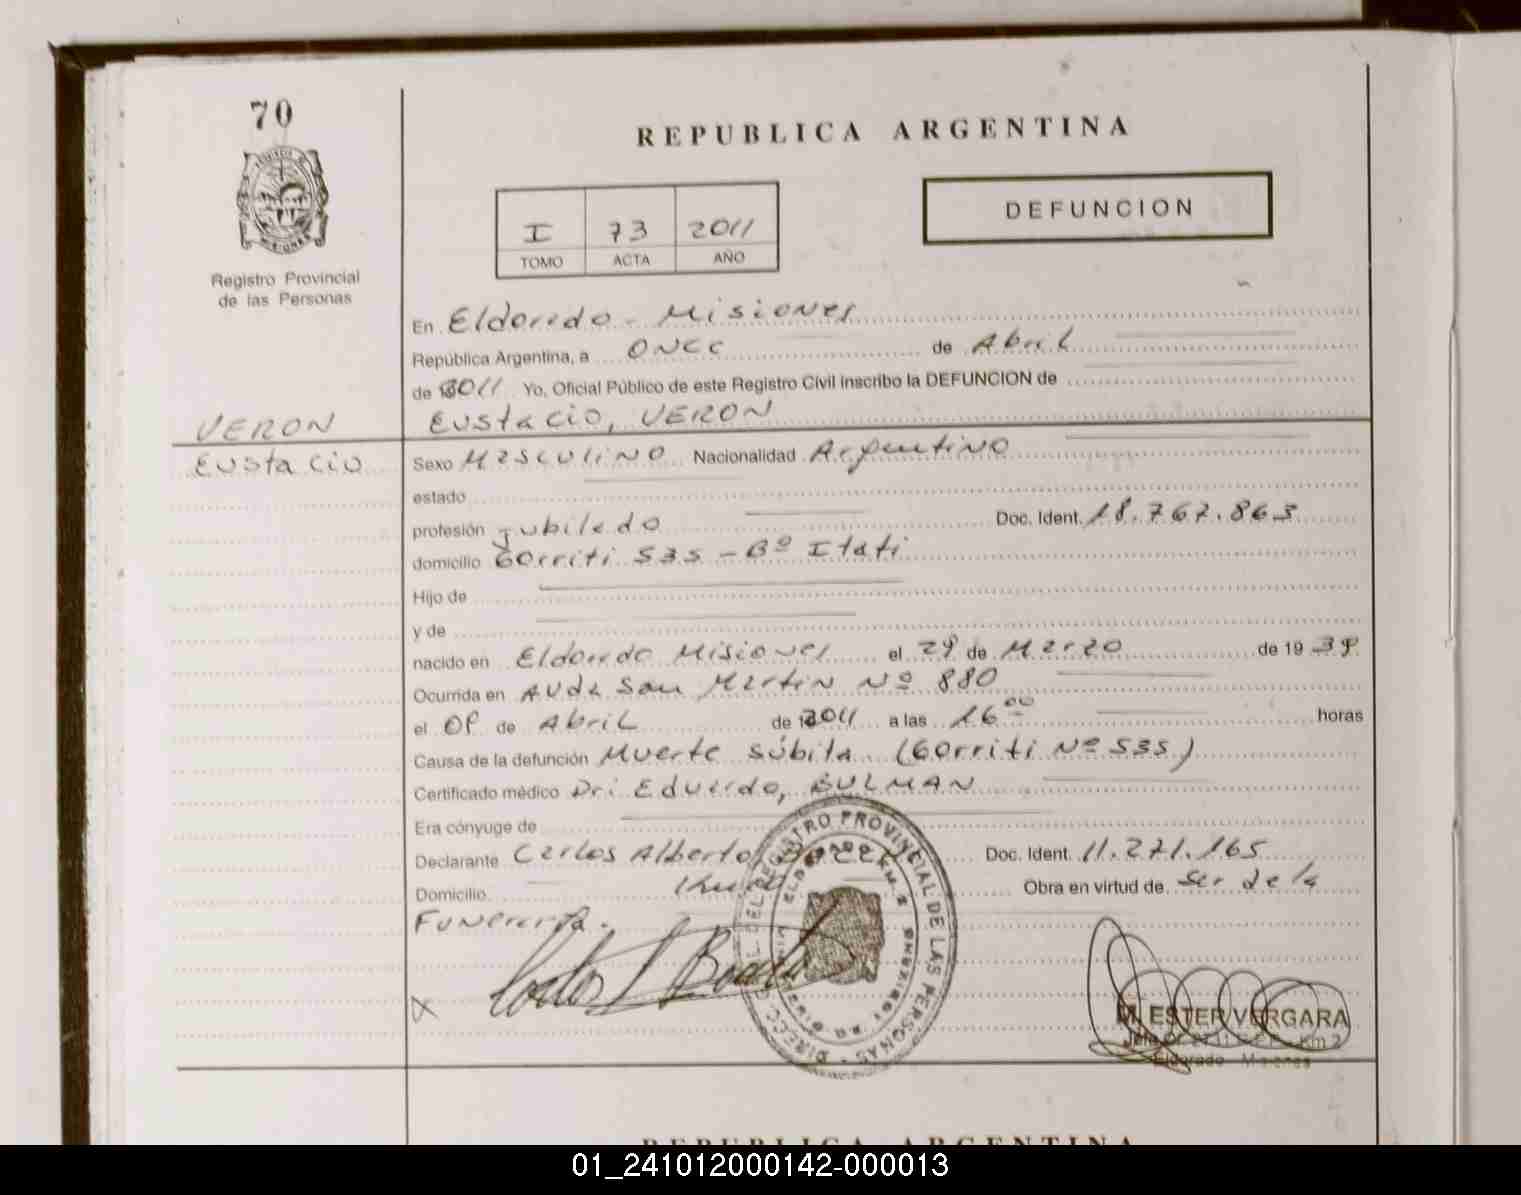 70
REPUBLICA ARGENTINA
DEFUNCION
I 73 2011
TOMO ACTA AÑO
Registro Provincial
de las Personas
En Eldorado - Misiones
República Argentina, a once de Abril
de 2011 Yo, Oficial Público de este Registro Civil inscribo la DEFUNCION de
VERON Eustacio, VERON
Eustacio Sexo Masculino Nacionalidad Argentino
estado
profesión Jubilado Doc. Ident. 18.767.863
domicilio Gorriti 535 - Bº Itati
Hijo de
y de
nacido en Eldorado Misiones el 29 de Marzo de 19 39
Ocurrida en Avda San Martin Nº 880
el 09 de Abril de 2011 a las 16 00 horas
Causa de la defunción Muerte súbita (Gorriti Nº 535)
Certificado médico Dr: Eduardo, BULMAN
Era cónyuge de
Declarante Carlos Alberto Doc. Ident. 11.271.165
Domicilio Obra en virtud de Ser de la
Funeraria.
REGISTRO PROVINCIAL DE LAS PERSONAS
M. ESTER VERGARA
Km 2
Eldorado - Misiones
REPUBLICA ARGENTINA
01_241012000142-000013